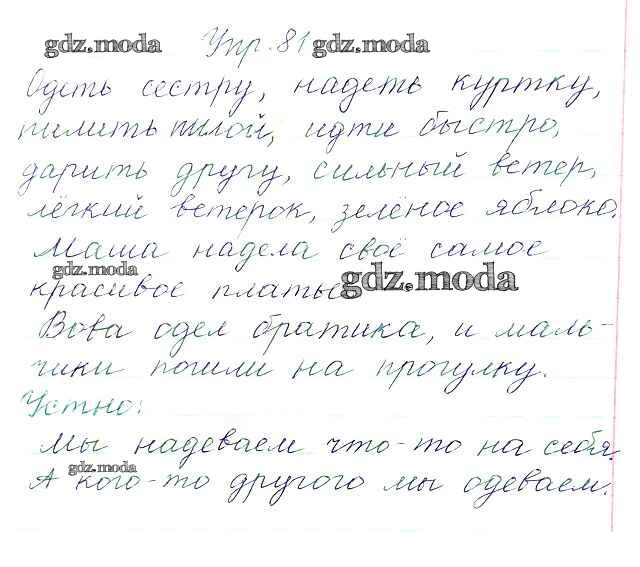 gdz.moda Упр. 81 gdz.moda
Одеть сестру, надеть куртку,
пилить пилой, идти быстро,
дарить другу, сильный ветер,
лёгкий ветерок, зелёное яблоко.
Маша надела своё самое
gdz.moda
красивое платье gdz.moda
Вова одел братика, и маль-
чики пошли на прогулку.
Устно:
Мы надеваем что-то на себя.
gdz.moda
А кого-то другого мы одеваем.